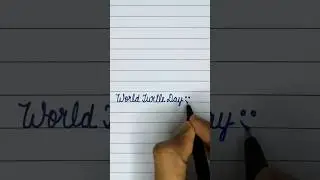 World Turtle Day :